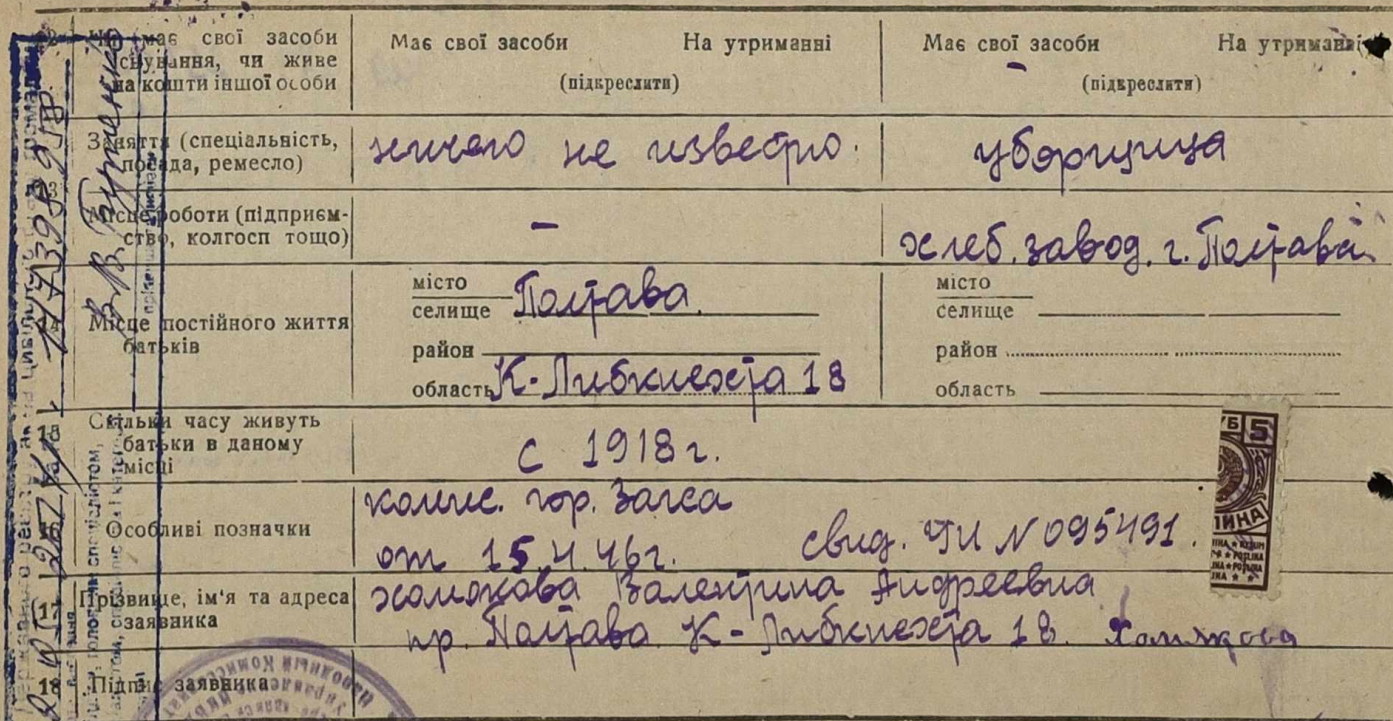 має свої засоби
існування, чи живе
на кошти іншої особи
Має свої засоби На утриманні
(підкреслити)
Має свої засоби На утриманні
(підкреслити)
Заняття (спеціальність,
посада, ремесло)
ничего не известно.
уборщица
Місце роботи (підприєм-
ство, колгосп тощо)
-
хлеб. завод. г. Полтава
Місце постійного життя
батьків
місто
селище Полтава.
район
область К-Либкнехта 18
місто
селище
район
область
15 Скільки часу живуть
батьки в даному
місці
с 1918 г.
Особливі позначки
комис. гор. Загса
от 15.4.46г. свид. ЧИ N 095491.
17 Прізвище, ім'я та адреса
заявника
Хомякова Валентина Андреевна
пр. Полтава К-Либкнехта 18. Хомякова
18 Підпис заявника
В.В. Бутенко
5